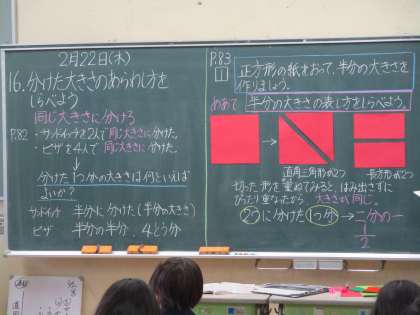 2月22日(木)
16.分けた大きさのあらわし方を
しらべよう
同じ大きさに分けろ
P.82
・サンドイッチを2人で同じ大きさに分けた。
・ピザを4人で同じ大きさに分けた。
↓
分けた1つ分の大きさは何といえば
よいか?
サンドイッチ 半分に分けた(半分の大きさ)
ピザ 半分の半分、4とう分
P.83
1
正方形の紙をおって、半分の大きさを
作りましょう。
めあて 半分の大きさの表し方をしらべよう。
→
直角三角形が2つ
長方形が2つ
切った形を重ねてみると、はみ出さずに
ぴったり重なったから 大きさが同じ。
2つに分けた1つ分→二分の一
1/2